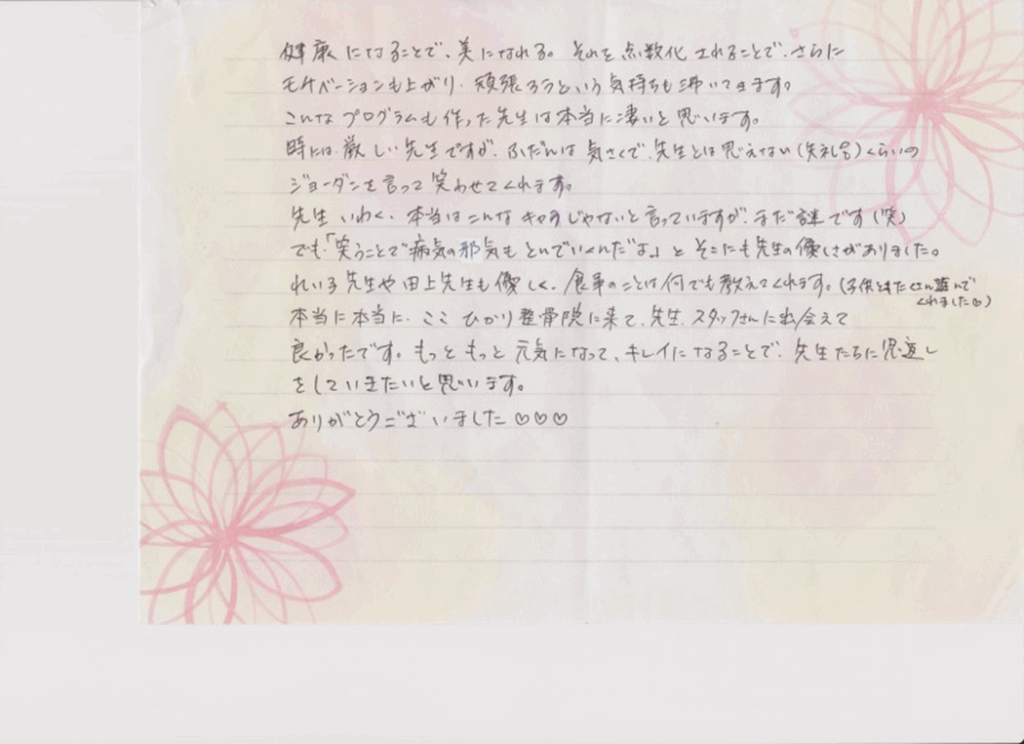 健康になることで、美になれる。それを点数化されることで、さらに
モチベーションも上がり、頑張ろうという気持ちも沸いてきます。
こんなプログラムも作った先生は本当に凄いと思います。
時には厳しい先生ですが、ふだんは気さくで、先生とは思えない(失礼)くらいの
ジョーダンを言って笑わせてくれます。
先生いわく、本当はこんなキャラじゃないと言っていますが、まだ謎です(笑)
でも「笑うことで病気の邪気もとんでいくんだよ」とそこにも先生の優しさがありました。
れい子先生や田上先生も優しく、食事のことは何でも教えてくれます。(子供ともたくさん遊んで
くれました♡)
本当に本当に、ここひかり整骨院に来て、先生、スタッフさんに出会えて
良かったです。もっともっと元気になって、キレイになることで、先生たちに恩返し
をしていきたいと思います。
ありがとうございました♡♡♡